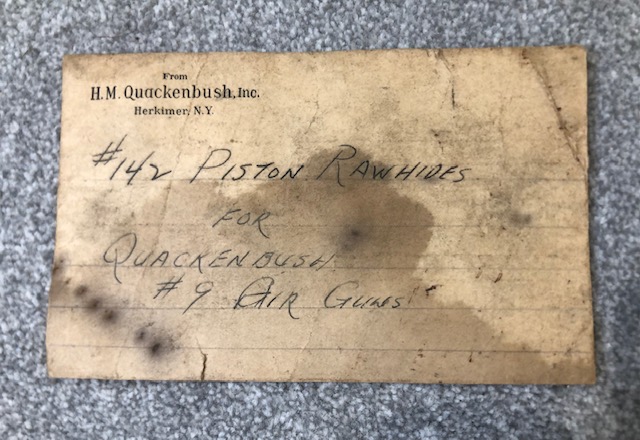 From
H. M. Quackenbush, Inc.
Herkimer, N.Y.
#142 PISTON RAWHIDES
FOR
QUACKENBUSH
#9 AIR GUNS